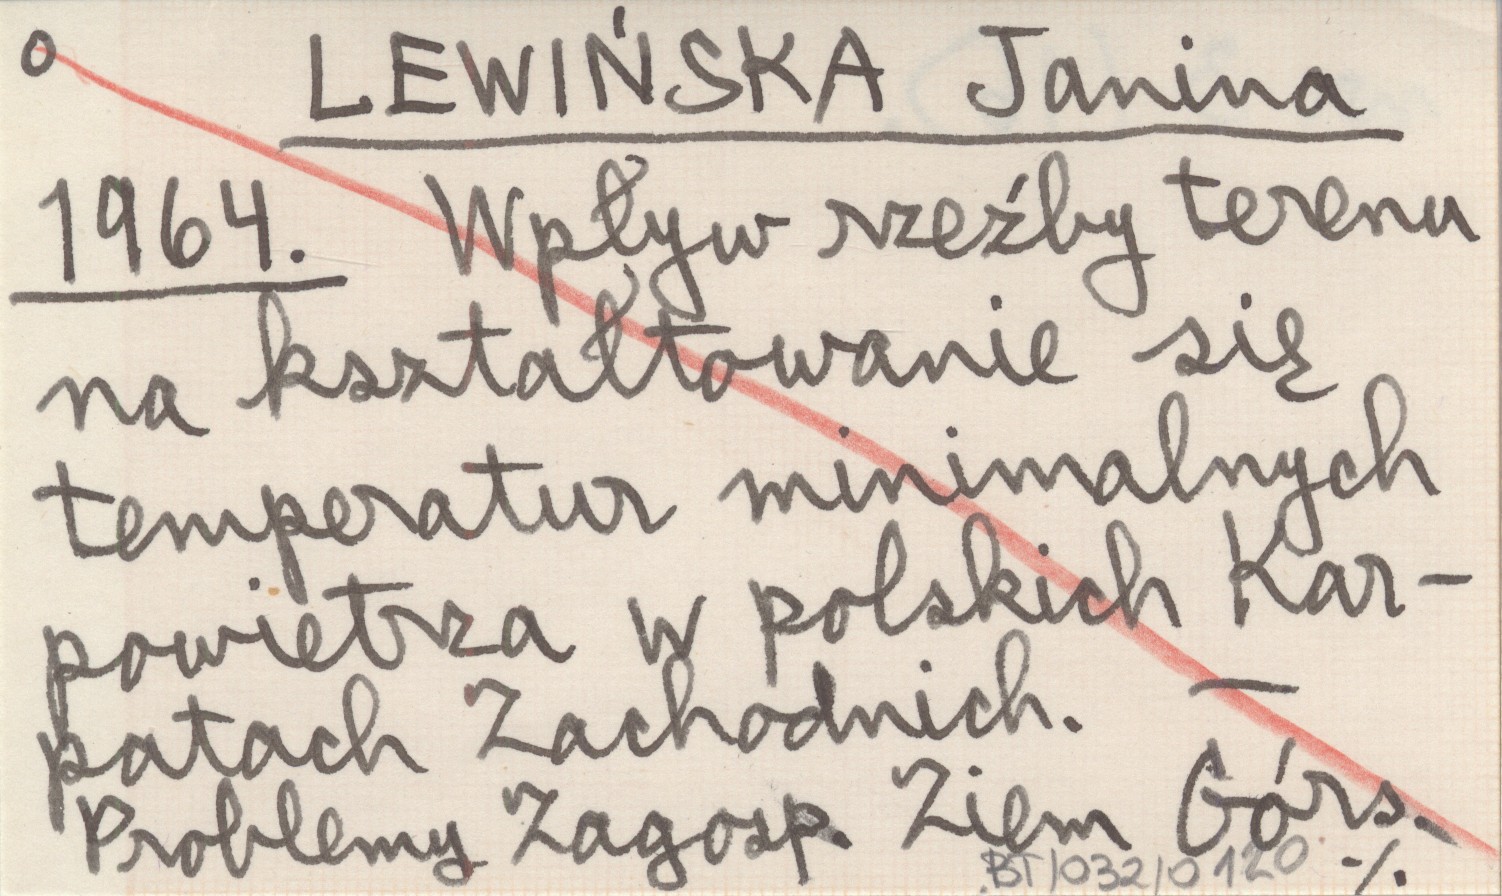 o LEWIŃSKA Janina
1964. Wpływ rzeźby terenu
na kształtowanie się
temperatur minimalnych
powietrza w polskich Kar-
patach Zachodnich. —
Problemy Zagosp. Ziem Górs.
BT/032/0120 -/.